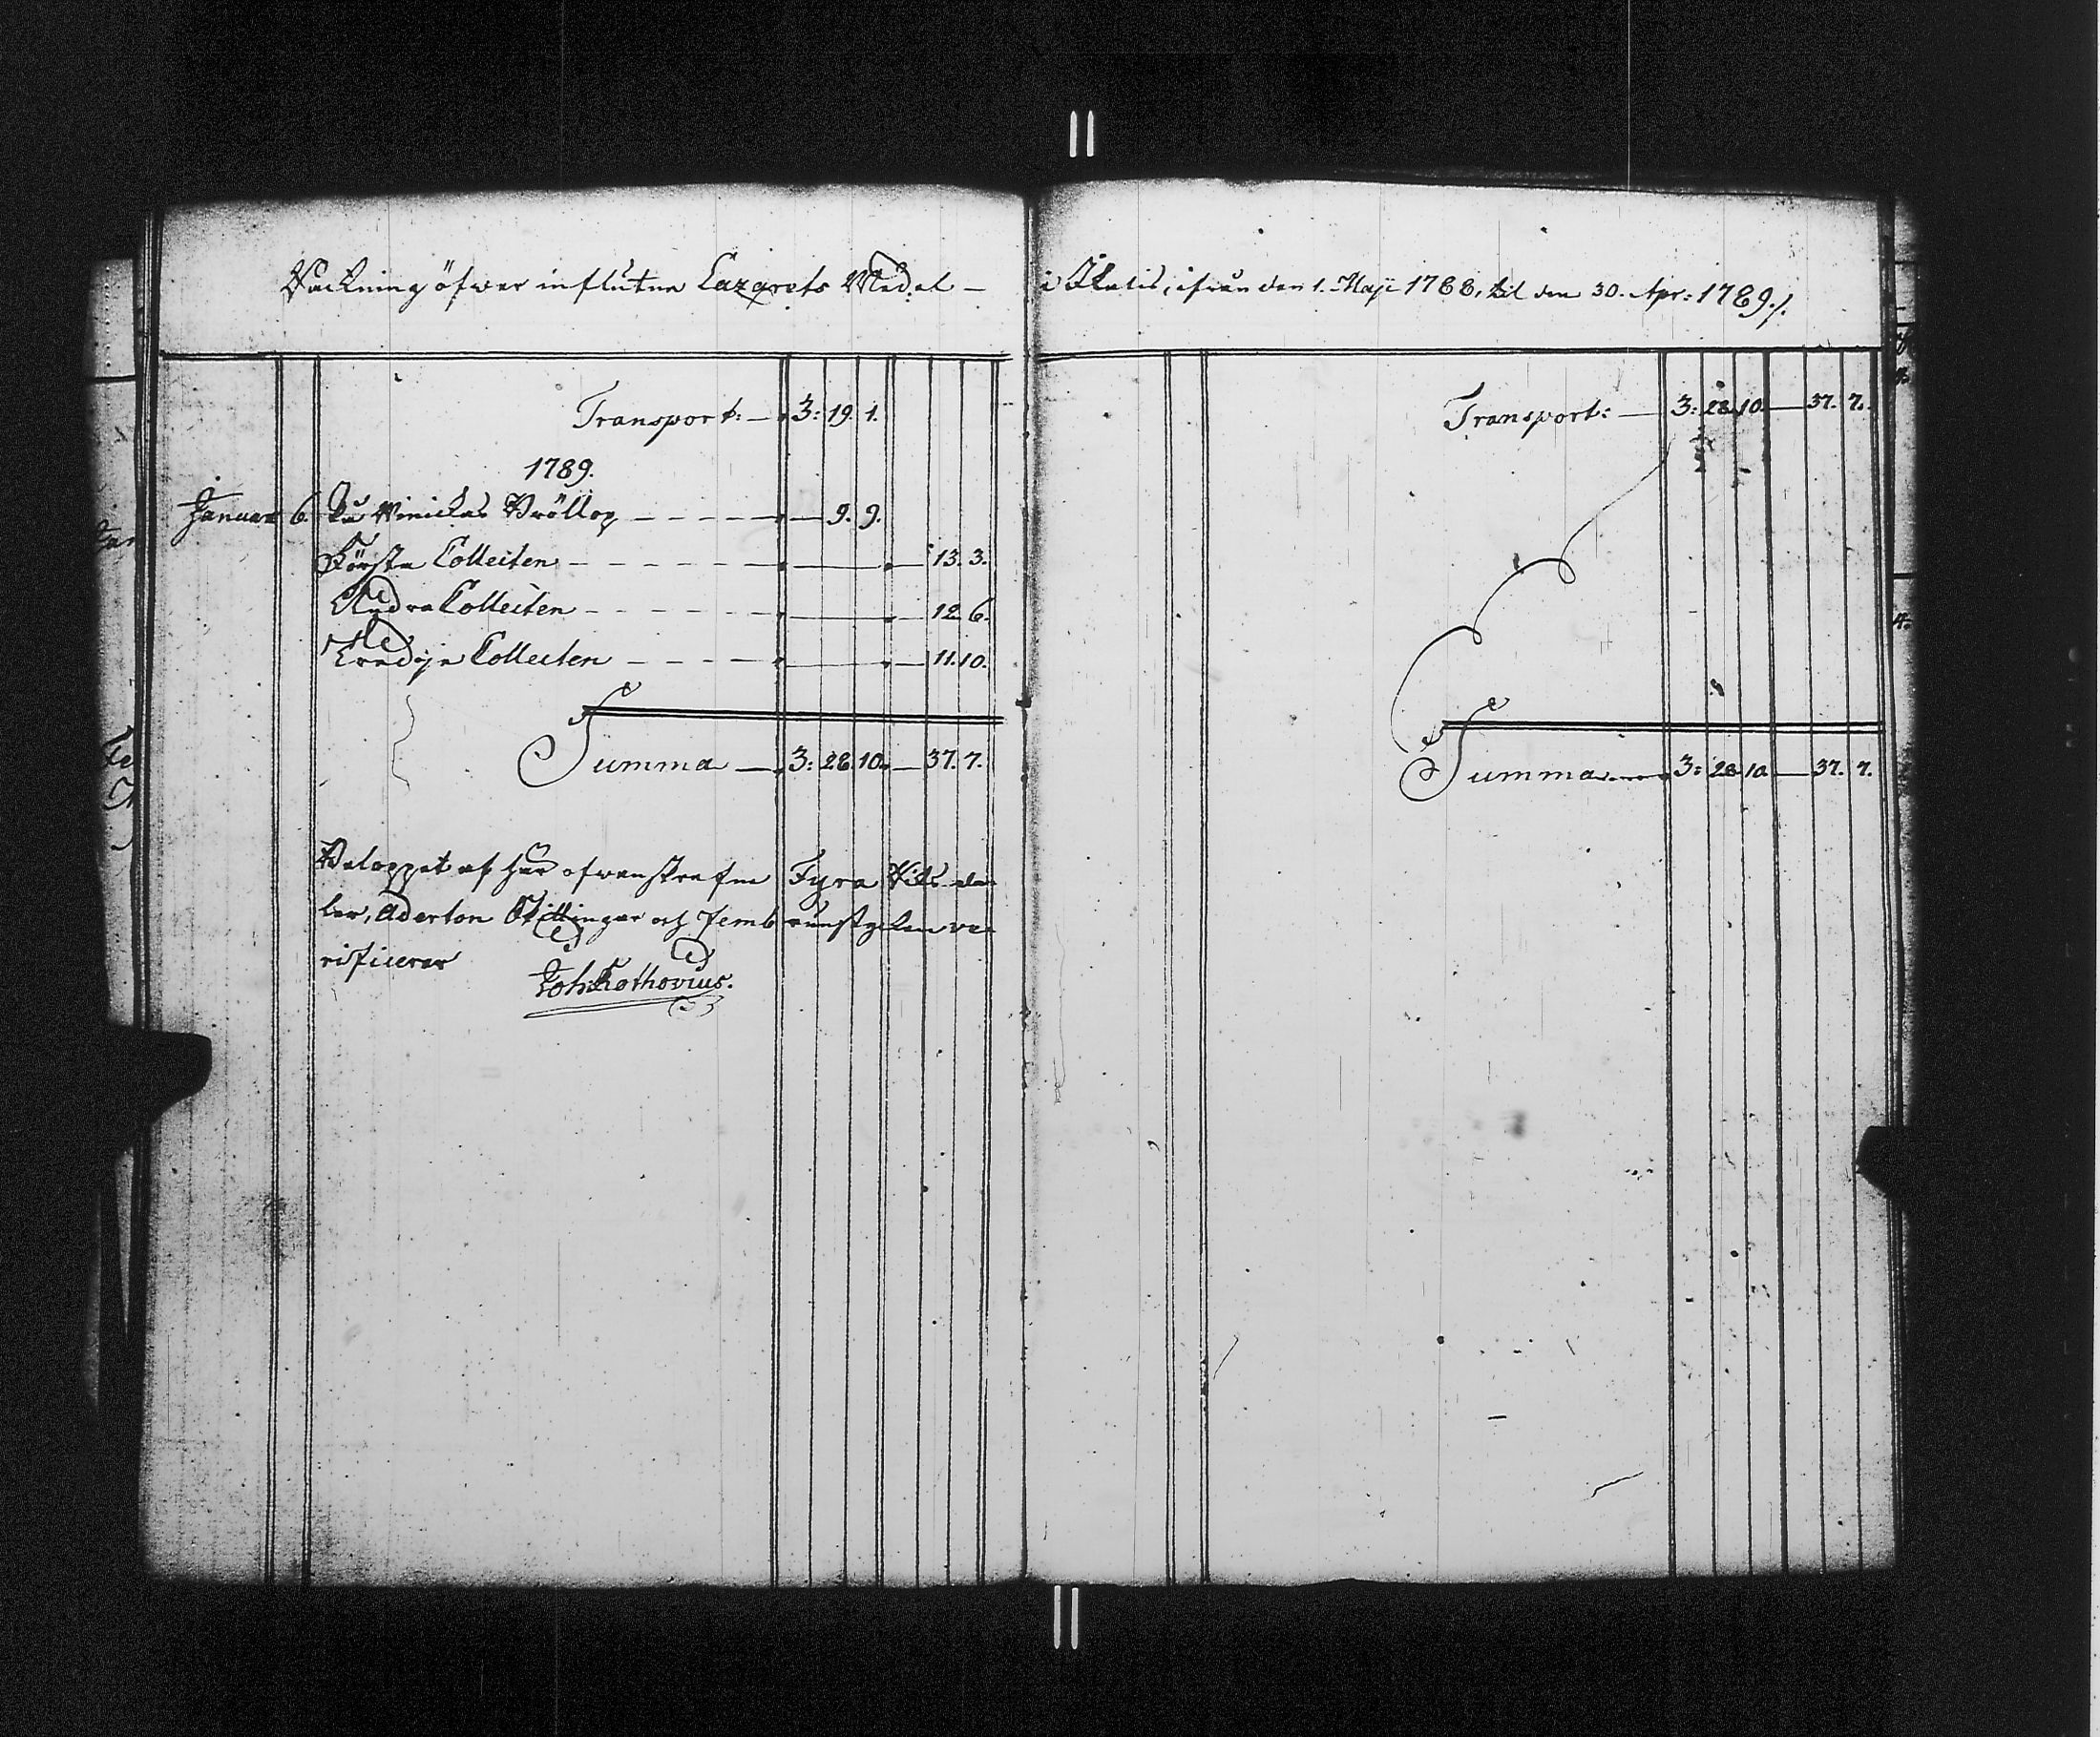 Räckning öfwer influtne Lazarets Medel —
Transport: — 3: 19. 1.
1789.
Januar 6. På Winickas Bröllop — — 9. 9.
Första Collecten — — — 13. 3.
Andra Collecten — — — 12. 6.
Tredje Collecten — — — 11. 10.
Summa — 3: 28. 10. — 37. 7.
Beloppet af här ofwanskrefne Fyra Riks da
ler, Aderton Skillingar och fem runstycken ve
rificerar
Joh: Kothovius.
i Ikalis, ifrån den 1. Maji 1788, til den 30. Apr: 1789./.
Transport: — 3: 28. 10. — 37. 7.
Summa — 3: 28. 10. — 37. 7.